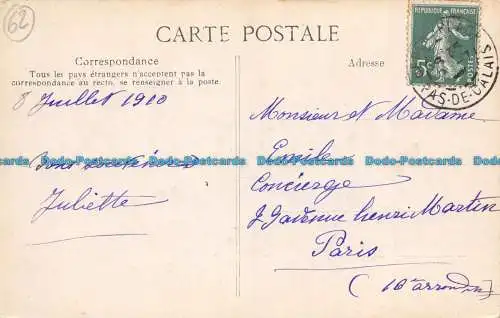 62
CARTE POSTALE
REPUBLIQUE FRANÇAISE
5c
POSTES
PAS-DE-CALAIS
Correspondance
Tous les pays étrangers n'acceptent pas la
correspondance au recto, se renseigner à la poste.
Adresse
8 Juillet 1910
Juliette
Monsieur et Madame
Emile
Concierge
avenue henri Martin
Paris
(16e arrond
Dodo-Postcards Dodo-Postcards Dodo-Postcards Dodo-Postcards